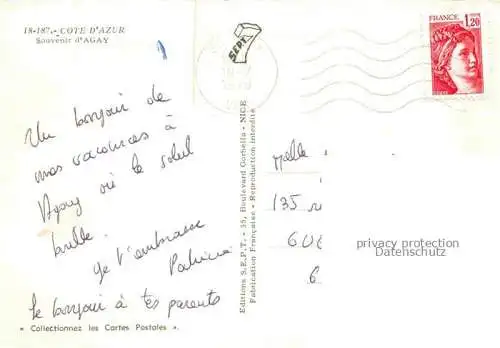 18-187. - COTE D'AZUR
Souvenir d'AGAY
Un bonjour de
mes vacances à
Agay où le soleil
brille.
Je t'embrasse
Patricia
le bonjour à tes parents
« Collectionnez les Cartes Postales ».
SEPT
7
Editions S.E.P.T. - 35, Boulevard Gorbella - NICE
Fabrication Française - Reproduction interdite
FRANCE
1,20
Melle
135
606
6
privacy protection
Datenschutz